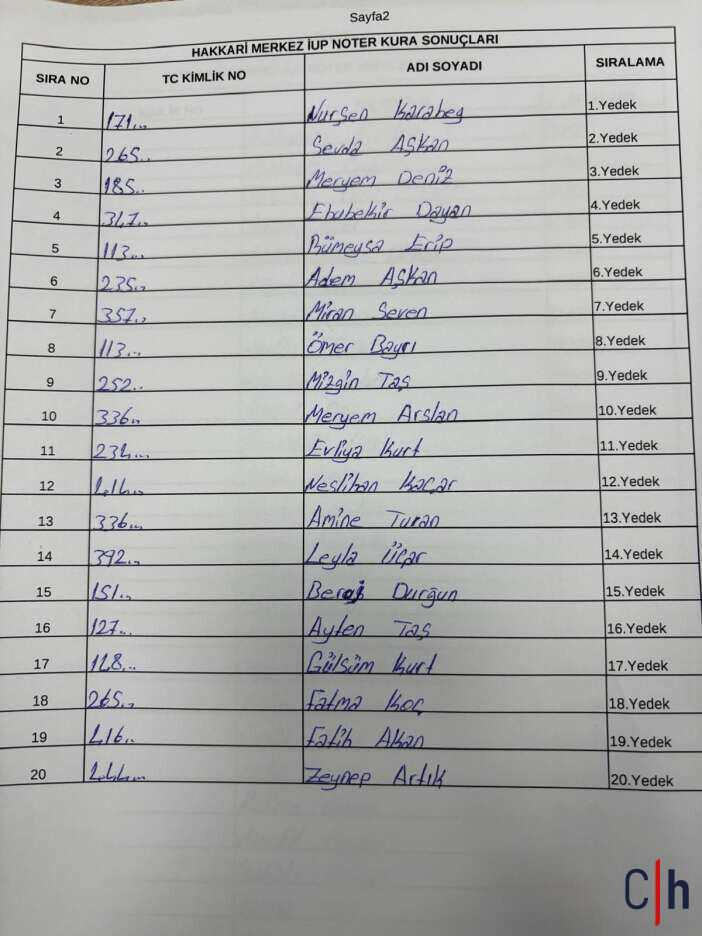 Sayfa2
HAKKARİ MERKEZ İUP NOTER KURA SONUÇLARI
SIRA NO TC KİMLİK NO ADI SOYADI SIRALAMA
1 171... Nurşen Karabeg 1.Yedek
2 265.. Sevda Aşkan 2.Yedek
3 185.. Meryem Deniz 3.Yedek
4 347.. Ebubekir Dayan 4.Yedek
5 113... Rümeysa Erip 5.Yedek
6 235.. Adem Aşkan 6.Yedek
7 357.. Miran Seven 7.Yedek
8 113... Ömer Bayrı 8.Yedek
9 252.. Mizgin Taş 9.Yedek
10 336.. Meryem Arslan 10.Yedek
11 Evliya Kurt 11.Yedek
12 Neslihan Kaçar 12.Yedek
13 336... Amine Turan 13.Yedek
14 392... Leyla Üçar 14.Yedek
15 151.. Durğun 15.Yedek
16 127... Ayten Taş 16.Yedek
17 Gülsüm Kurt 17.Yedek
18 265.. Fatma Koç 18.Yedek
19 Fatih Akan 19.Yedek
20 Zeynep Artık 20.Yedek
C|h